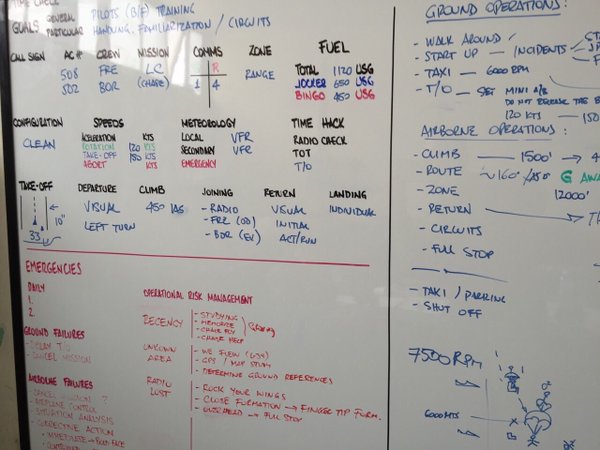 TIME CHECK
GOALS GENERAL PILOTS (B/F) TRAINING
PARTICULAR HANDLING, FAMILIARIZATION / CIRCUITS
CALL SIGN AC# CREW MISSION COMMS ZONE FUEL
508 FRE LC R RANGE TOTAL 1120 USG
502 BOR (CHASE) 1 4 JOCKER 650 USG
BINGO 450 USG
CONFIGURATION SPEEDS METEOROLOGY TIME HACK
CLEAN ACELERATION KTS LOCAL VFR RADIO CHECK
ROTATION 120 KTS SECONDARY VFR TOT
TAKE-OFF 150 KTS EMERGENCY T/O
ABORT KTS
TAKE-OFF DEPARTURE CLIMB JOINING RETURN LANDING
10" VISUAL 450 IAS - RADIO VISUAL INDIVIDUAL
33 LEFT TURN - FRE (OD) INITIAL
- BOR (EV) ACT/RUN
EMERGENCIES
DAILY OPERATIONAL RISK MANAGEMENT
1.
2.
RECENCY - STUDYING
- MEMORIZE
- CHAIR FLY
GROUND FAILURES
- DELAY T.O
- CANCEL MISSION
UNKOWN AREA - WE FLEW
- GPS / MAP STUDY
- DETERMINE GROUND REFERENCES
AIRBORNE FAILURES
- CANCEL MISSION ?
- AIRPLANE CONTROL
- SITUATION ANALYSIS
- CORRECTIVE ACTION
- IMMEDIATE → BOLD FACE
RADIO LOST - ROCK YOUR WINGS
- CLOSE FORMATION → FINGER TIP FORM.
- OVERHEAD → FULL STOP
GROUND OPERATIONS:
- WALK AROUND
- START UP — INCIDENTS
- TAXI — 6000 RPM
- T/O — SET MINI A/B
DO NOT RELEASE THE B
120 KTS — 150
AIRBORNE OPERATIONS:
- CLIMB — 1500'
- ROUTE G AWA
- ZONE 12000'
- RETURN
- CIRCUITS
- FULL STOP
- TAXI / PARKING
- SHUT OFF
7500 RPM
6000 MTS